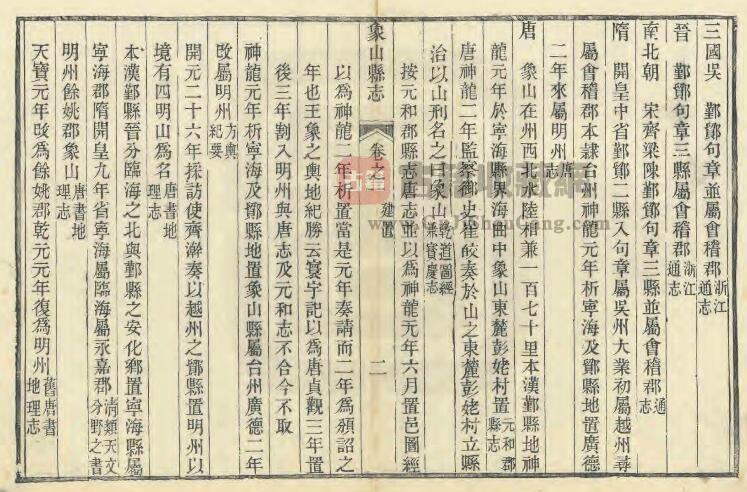 三國吳　鄞鄮句章並屬會稽郡浙江通志
晉　鄞鄮句章三縣屬會稽郡浙江通志
南北朝　宋齊梁陳鄞鄮句章三縣並屬會稽郡通志
隋　開皇中省鄞鄮二縣入句章屬吳州大業初屬越州尋
屬會稽郡本隸台州神龍元年析寧海及鄮縣地置廣德
二年來屬明州唐志
唐　象山在州西北水陸相兼一百七十里本漢鄞縣地神
龍元年於寧海縣界海曲中象山東麓彭姥村置元和郡縣志
唐神龍二年監察御史崔皎奏於山之東麓彭姥村立縣
治以山形名之曰象山乾道圖經兼寶慶志
按元和郡縣志唐志並以為神龍元年六月置邑圖經
象山縣志　卷之　建置　二
以為神龍二年析置當是元年奏請而二年為頒詔之
年也王象之輿地紀勝云寰宇記以為唐貞觀三年置
後三年割入明州與唐志及元和志不合今不取
神龍元年析寧海及鄮縣地置象山縣屬台州廣德二年
改屬明州方輿紀要
開元二十六年採訪使齊澣奏以越州之鄮縣置明州以
境有四明山為名唐書地理志
本漢鄞縣晉分臨海之北與鄞縣之安化鄉置寧海縣屬
寧海郡隋開皇九年省寧海屬臨海屬永嘉郡清類天文分野之書
明州餘姚郡象山唐書地理志
天寶元年改為餘姚郡乾元元年復為明州舊唐書地理志